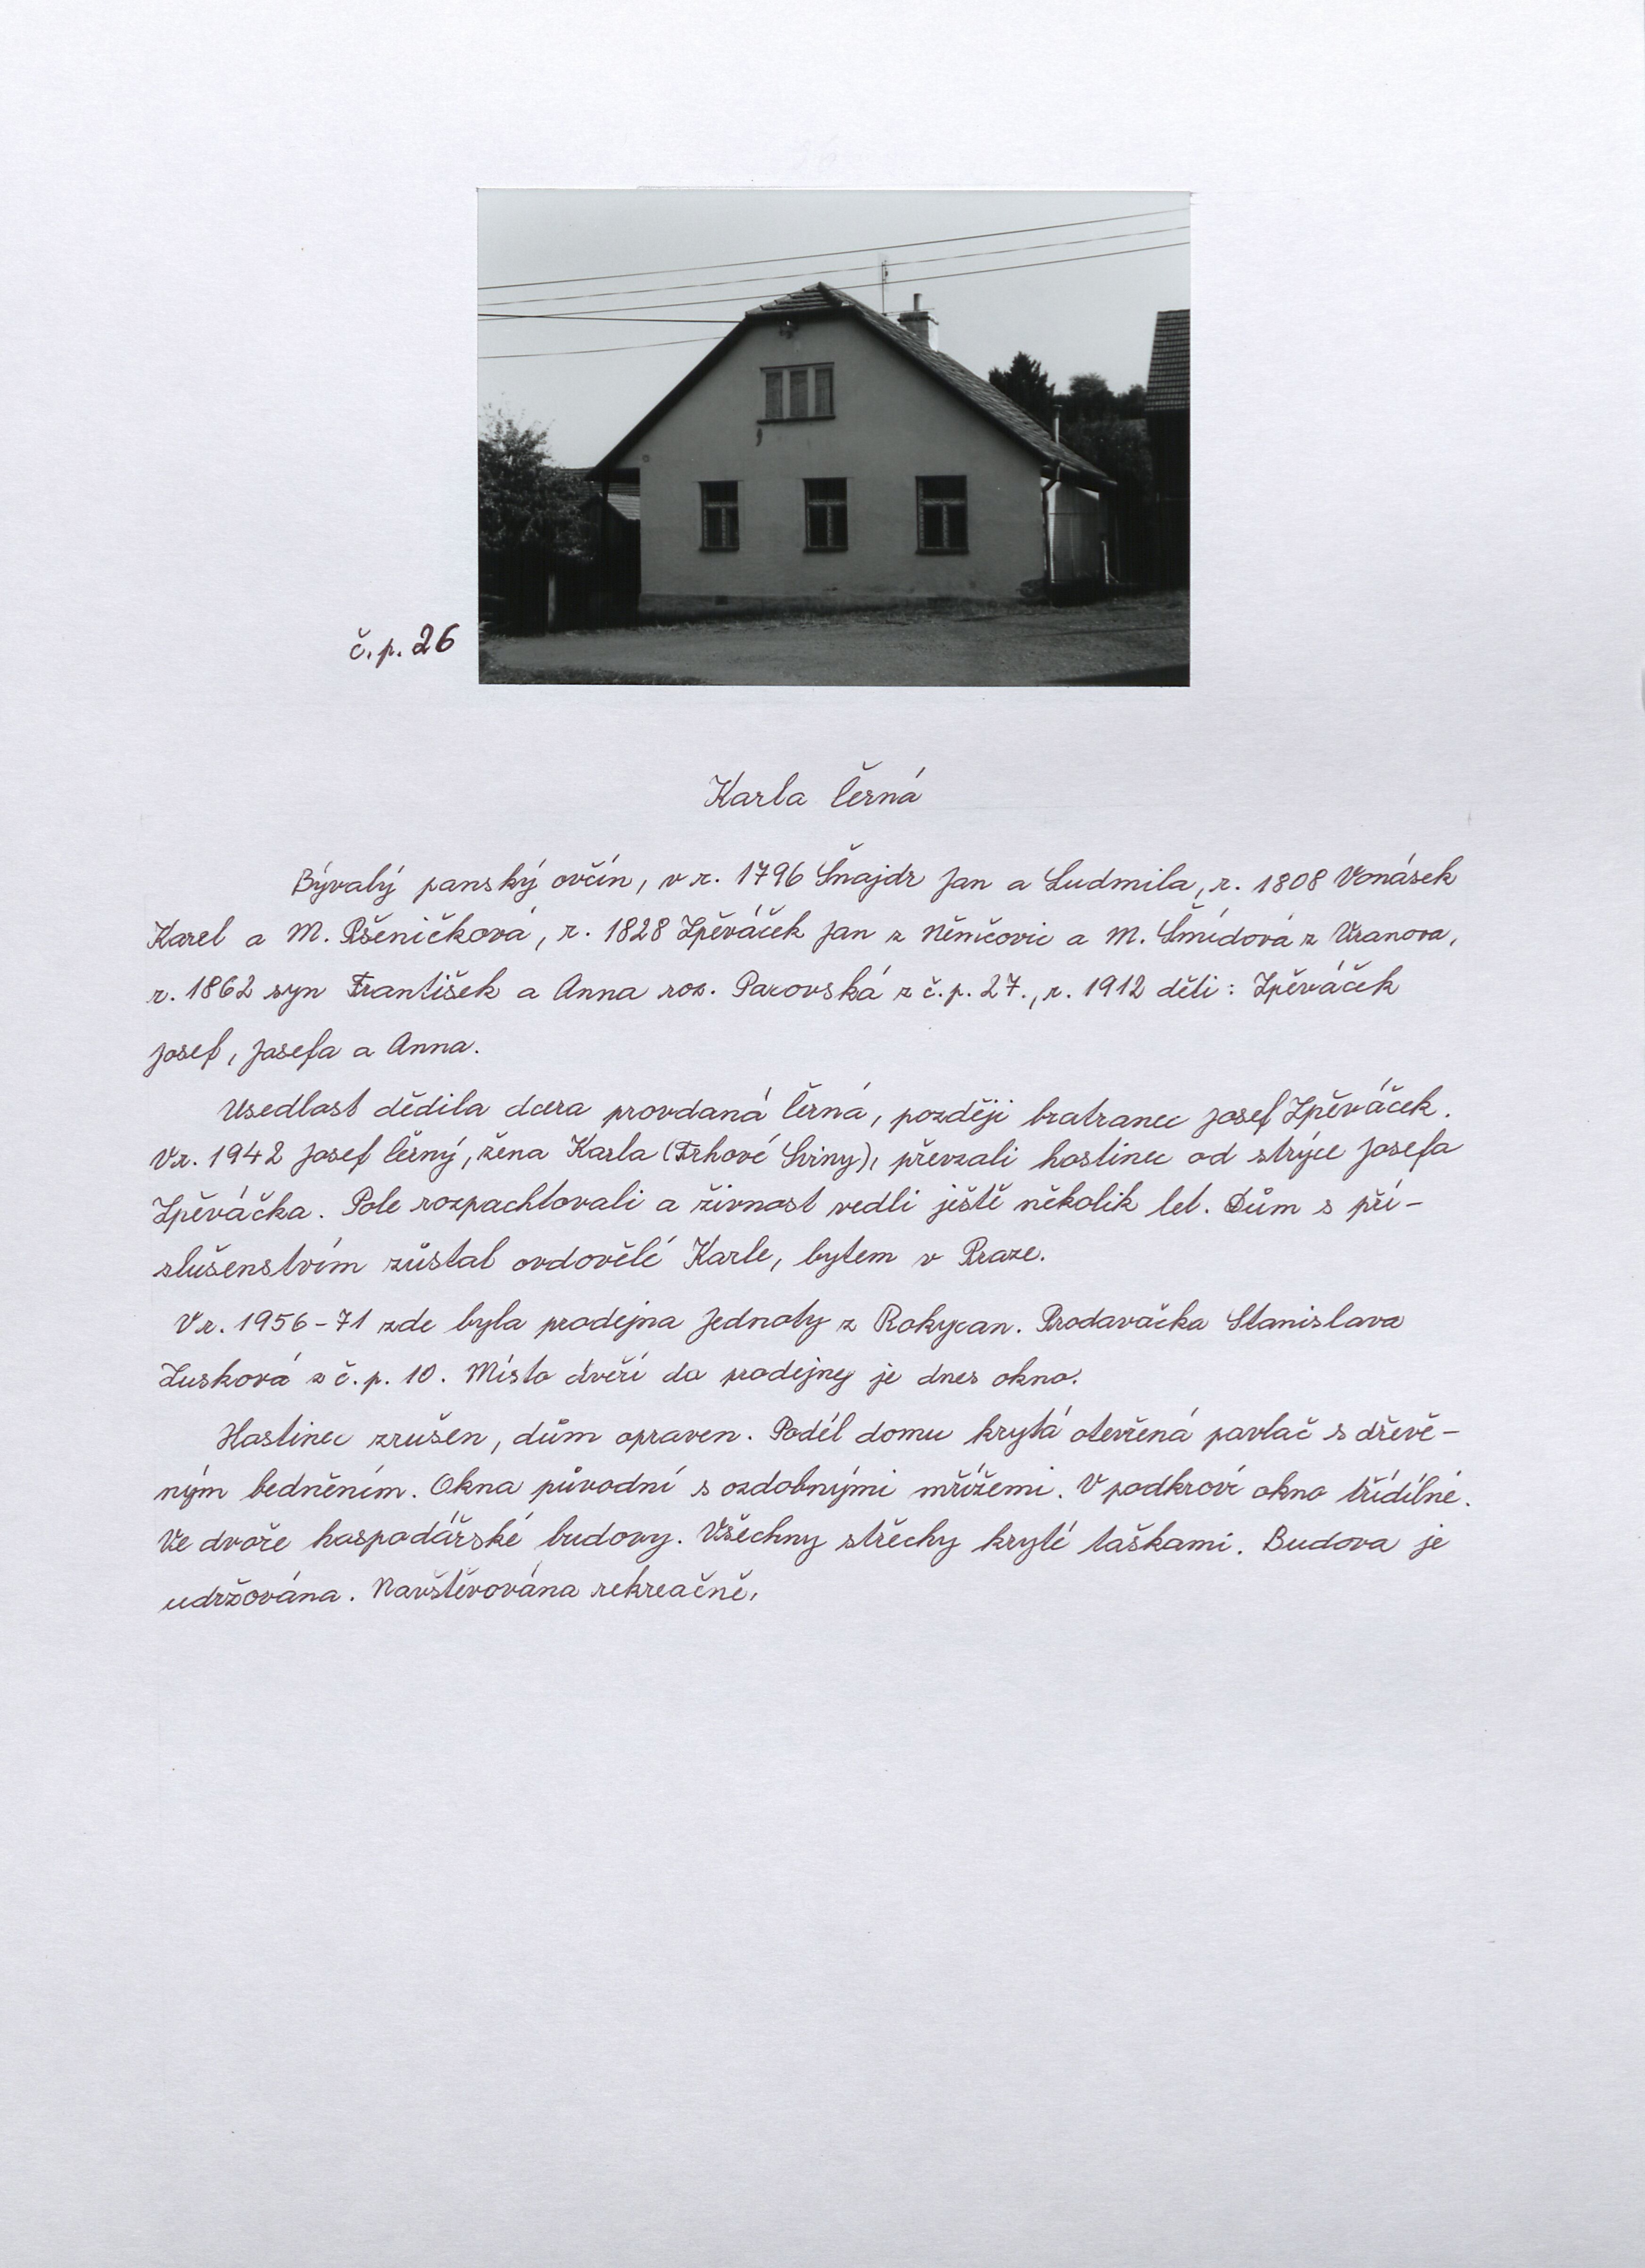 č.p. 26
Karla Černá
Bývalý panský ovčín, v r. 1796 Šnajdr Jan a Ludmila, r. 1808 Vonásek
Karel a M. Pšeničková, r. 1828 Zpěváček Jan z Němčovic a M. Šmídová z Vranova,
r. 1862 syn František a Anna roz. Parovská z č.p. 27., r. 1912 děti: Zpěváček
Josef, Josefa a Anna.
Usedlost dědila dcera provdaná Černá, později bratranec Josef Zpěváček.
V r. 1942 Josef Černý, žena Karla (Trhové Sviny), převzali hostinec od strýce Josefa
Zpěváčka. Pole rozpachtovali a živnost vedli ještě několik let. Dům s pří-
slušenstvím zůstal ovdovělé Karle, bytem v Praze.
V r. 1956-71 zde byla prodejna Jednoty z Rokycan. Prodavačka Stanislava
Lusková z č.p. 10. Místo dveří do prodejny je dnes okno.
Hostinec zrušen, dům opraven. Podél domu krytá otevřená pavlač s dřevě-
ným bedněním. Okna původní s ozdobnými mřížemi. V podkroví okno třídílné.
Ve dvoře hospodářské budovy. Všechny střechy kryté taškami. Budova je
udržována. Navštěvována rekreačně.